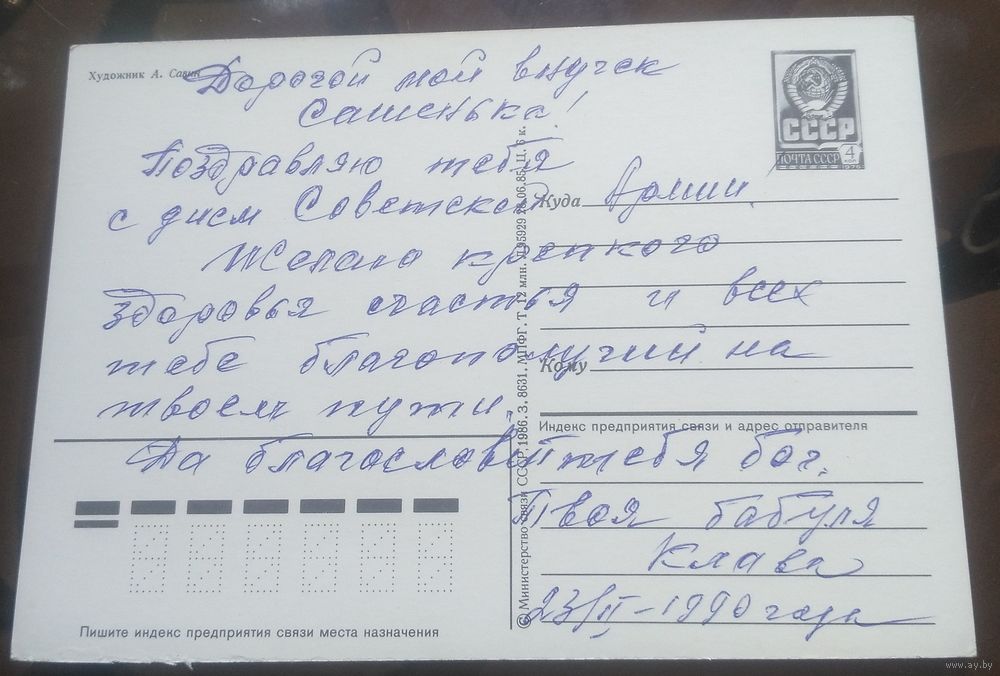 Художник А. Савин
Дорогой мой внучек
Сашенька!
Поздравляю тебя
с днем Советской Армии.
Желаю крепкого
здоровья счастья и всех
тебе благополучий на
твоем пути.
Да благословит тебя бог.
Твоя бабуля
Клава
23/II-1990 года
СССР
ПОЧТА СССР
4
Куда
Кому
Индекс предприятия связи и адрес отправителя
Пишите индекс предприятия связи места назначения
© Министерство связи СССР, 1986. З. 8631. МПФГ. Т. 12 млн. 06.85. Ц. 6 к.
www.ay.by